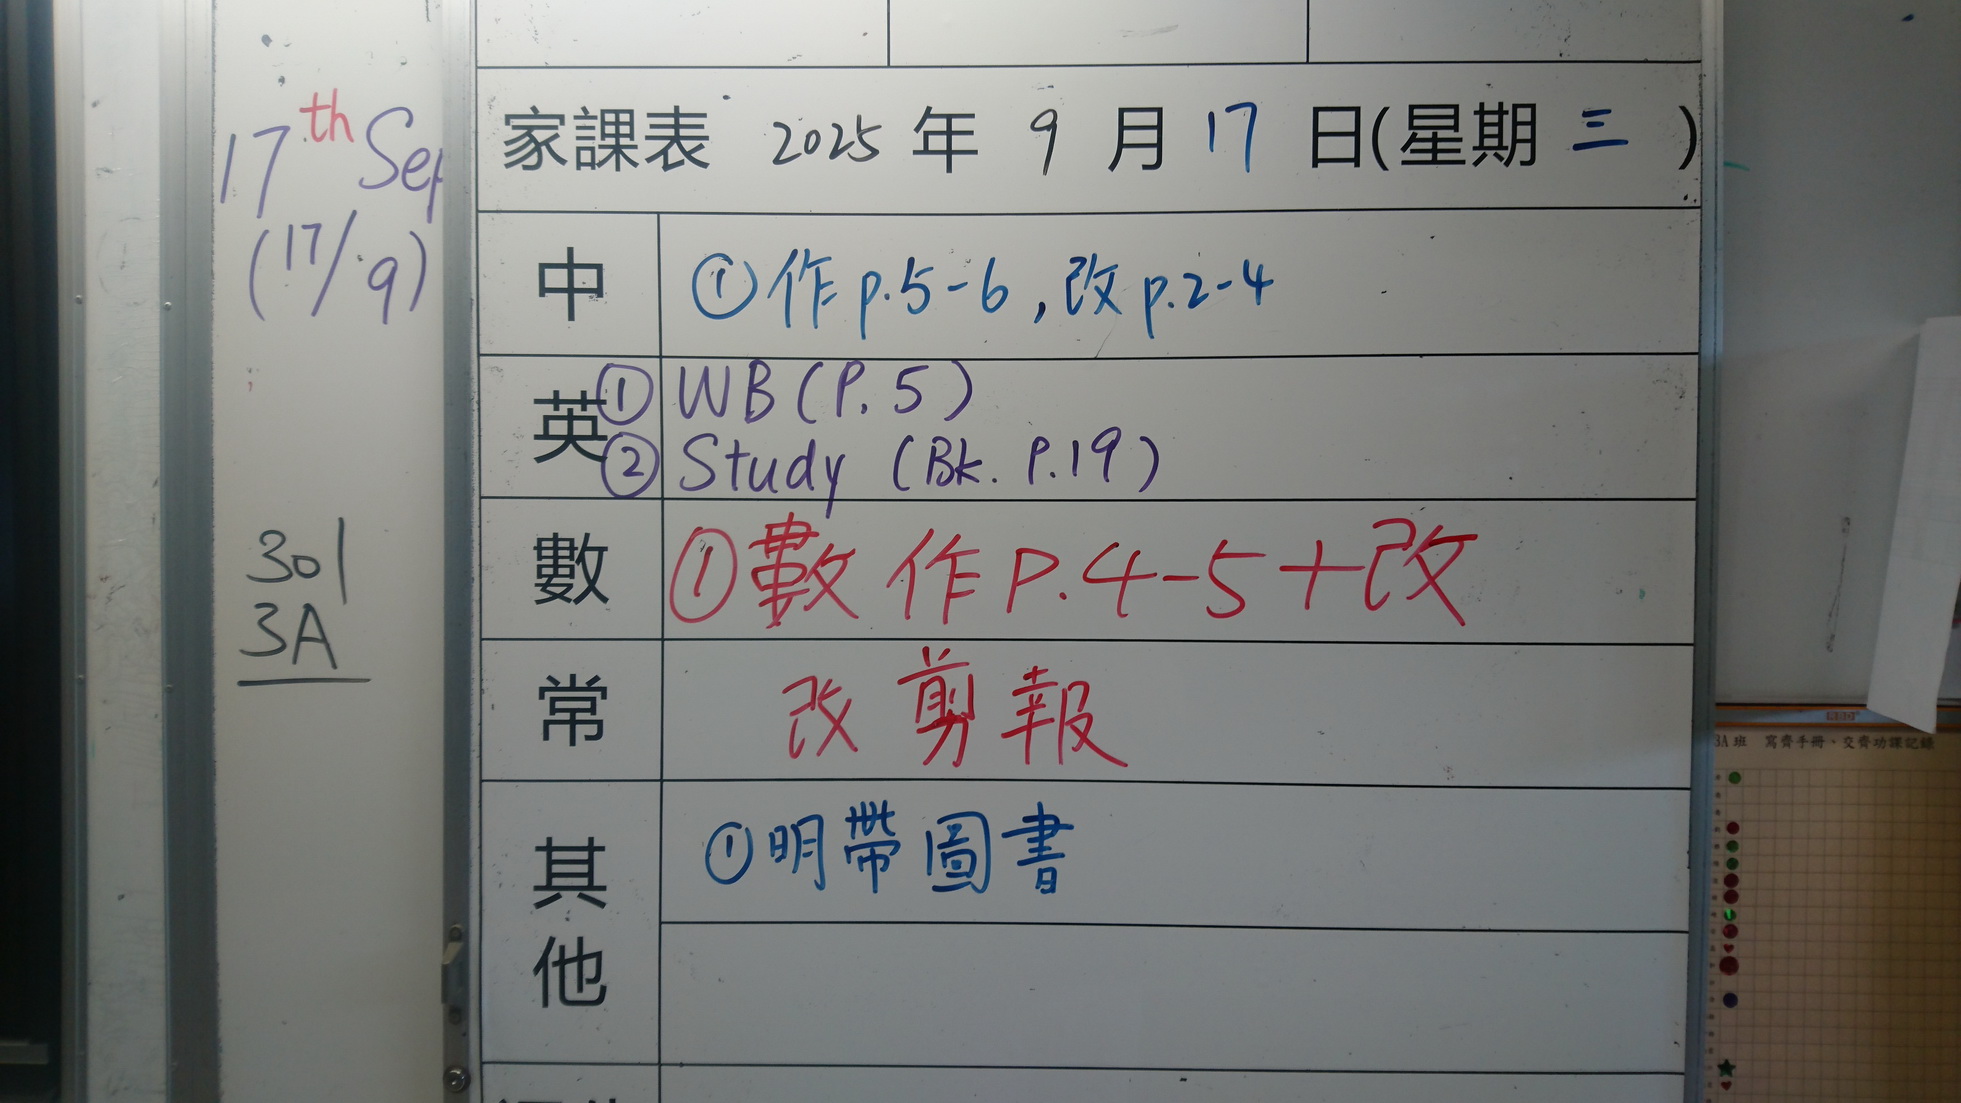 17th Sep
(17/9)
301
3A
家課表 2025 年 9 月 17 日(星期 三 )
中 ①作 p.5-6,改 p.2-4
英 ① WB (P. 5)
② Study (Bk. P.19)
數 ①數作 P.4-5+改
常 改剪報
其他 ①明帶圖書
3A 班 寫齊手冊、交齊功課記錄